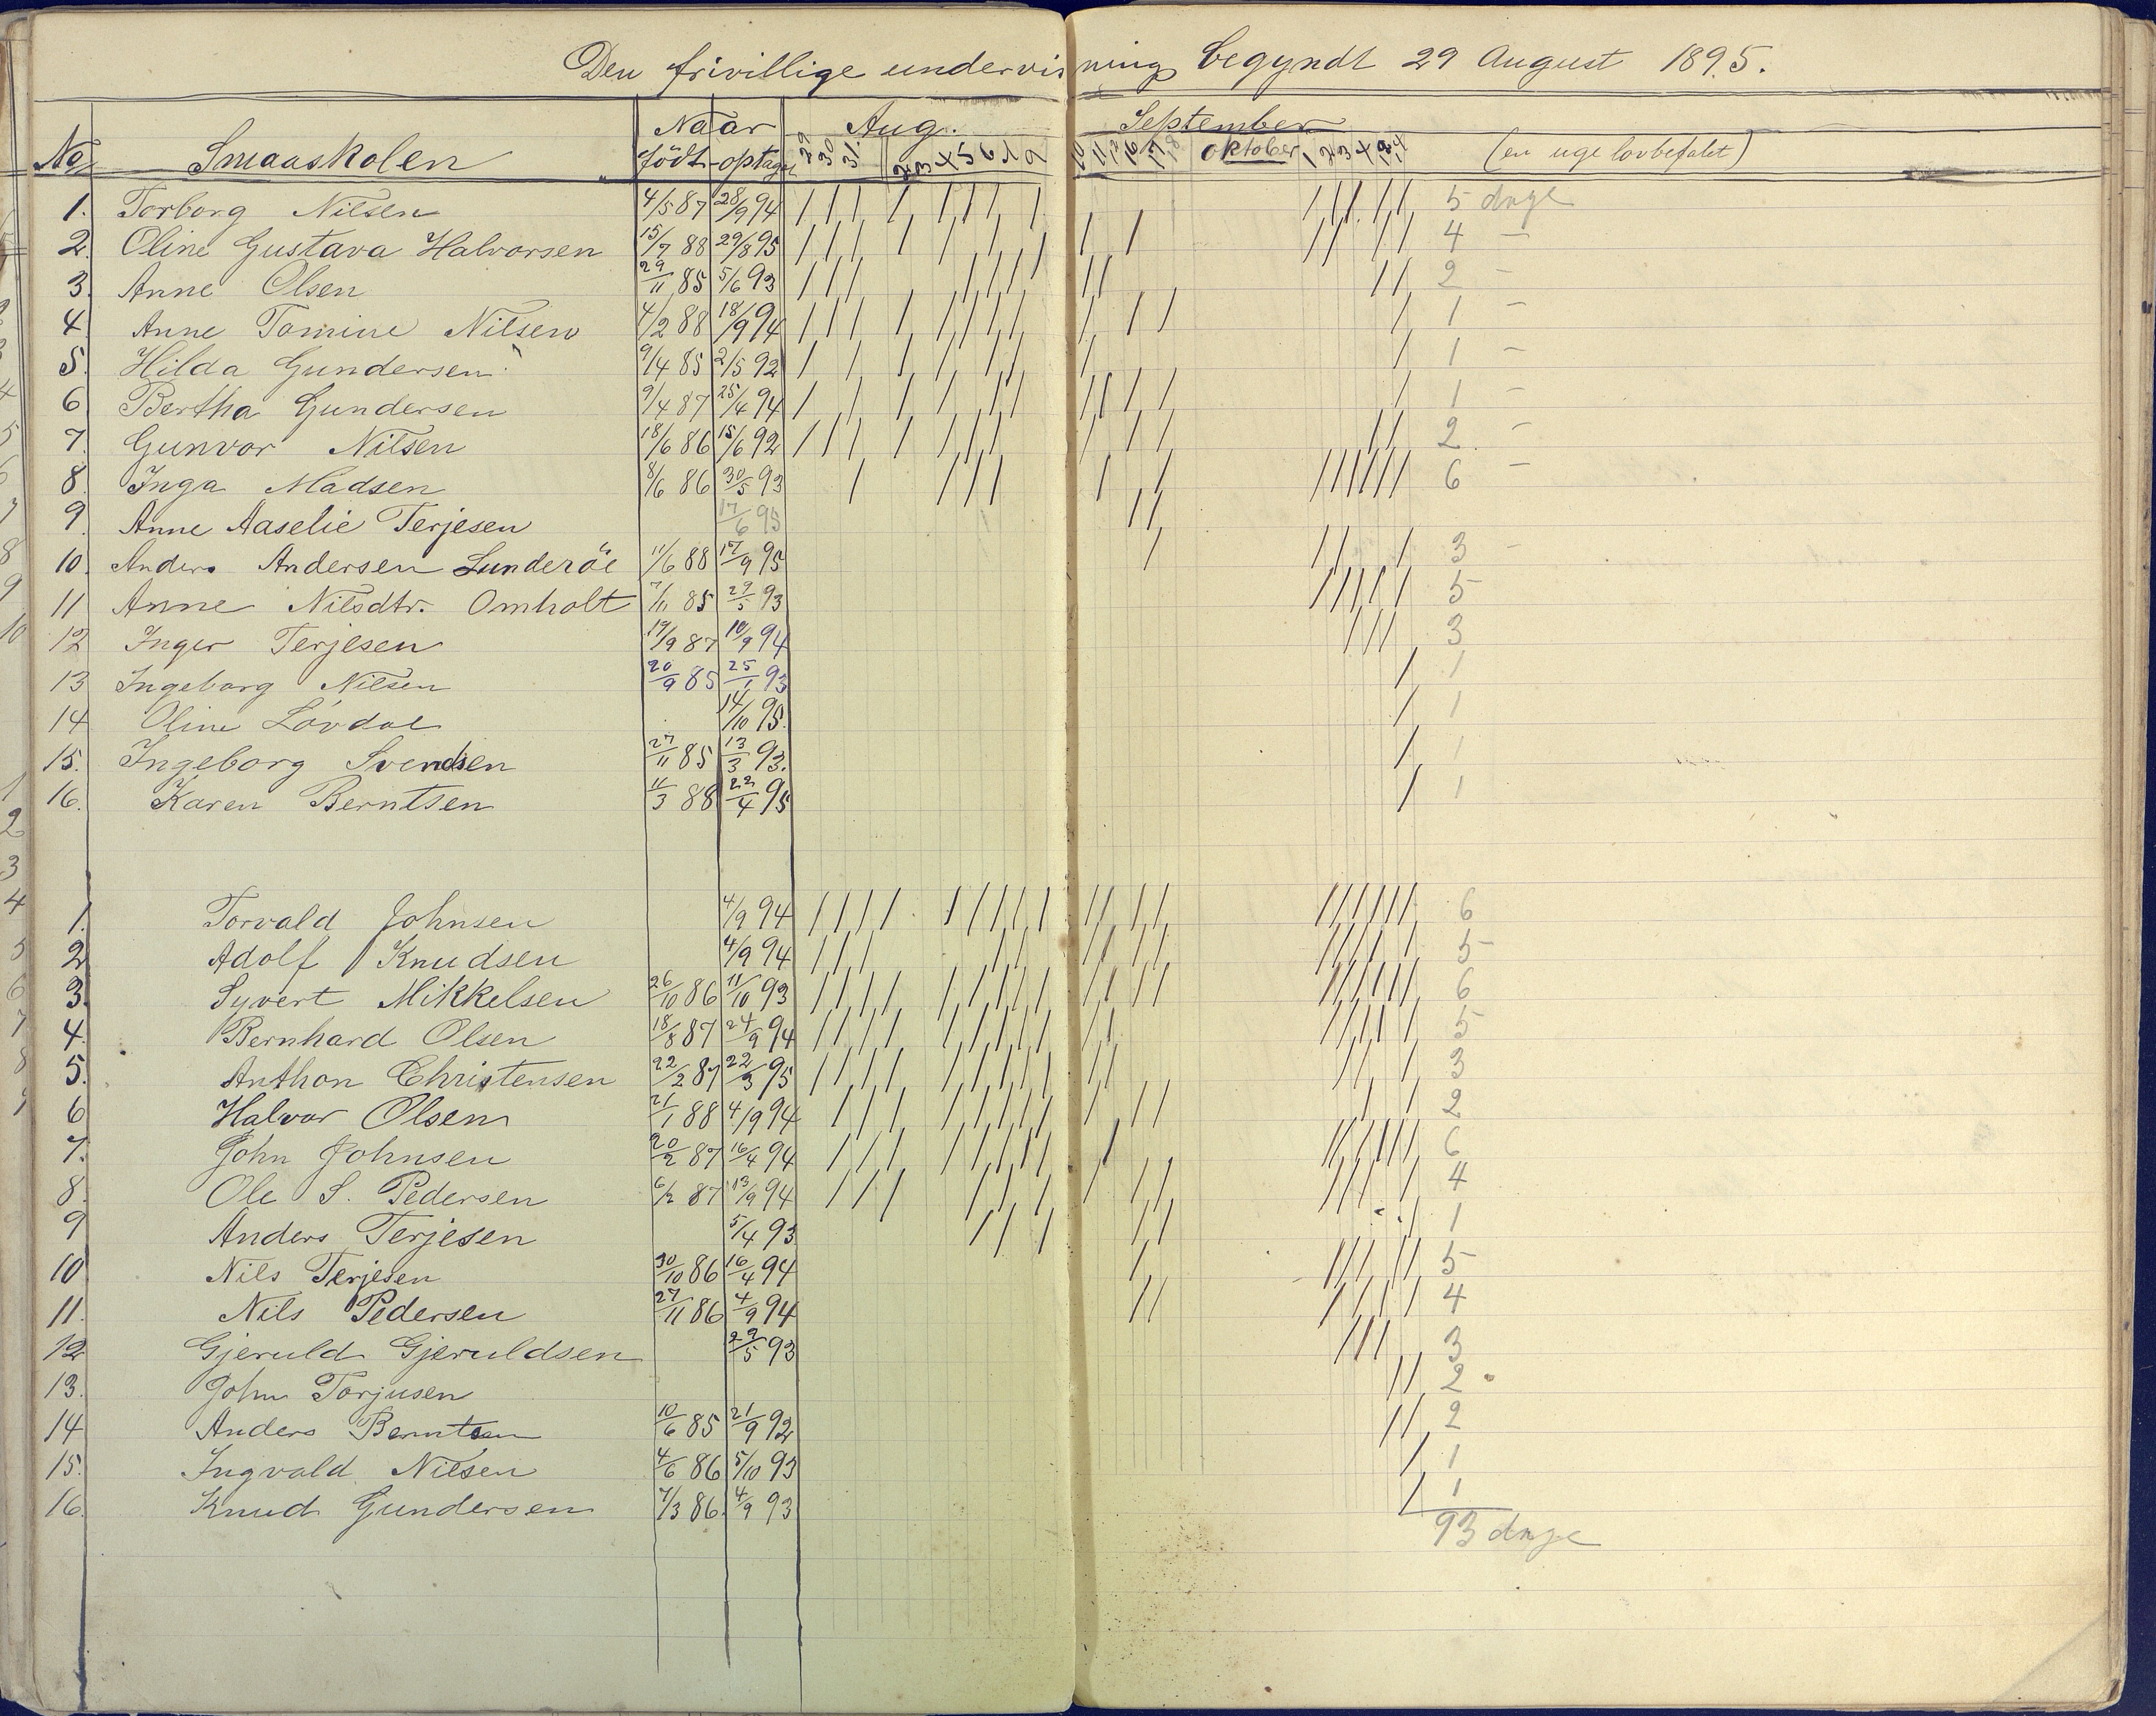 Den frivillige undervisning begyndt 29 August 1895.
Naar Aug. September
No Smaaskolen födt optaget 29 30 31 2 3 4 5 6 7 9 10 11 12 16 17 18 Oktober 1 2 3 4 12 14 (en uge lovbefalet)
1. Torborg Nilsen 4/5 87 28/9 94 5 dage
2. Oline Gustava Halvorsen 15/7 88 29/8 95 4 –
3. Anne Olsen 29/11 85 5/6 93 2 –
4. Anne Tomine Nilsen 4/2 88 18/9 94 1 –
5. Hilda Gundersen 9/4 85 2/5 92 1 –
6 Bertha Gundersen 9/4 87 25/4 94 1 –
7. Gunvor Nilsen 18/6 86 15/6 92 2 –
8. Inga Madsen 8/6 86 30/5 93 6 –
9. Anne Aaselie Terjesen 17/6 95
10. Anders Andersen Lunderöe 11/6 88 17/9 95 3 –
11 Anne Nilsdtr. Omholt 7/11 85 29/5 93 5
12 Inger Terjesen 19/9 87 10/9 94 3
13 Ingeborg Nilsen 20/9 85 25/1 93 1
14 Oline Lövdal 14/10 95. 1
15. Ingeborg Svendsen 27/11 85 13/3 93. 1
16. Karen Berntsen 11/3 88 22/4 95 1
1. Torvald Johnsen 4/9 94 6
2. Adolf Knudsen 4/9 94 5
3. Syvert Mikkelsen 26/10 86 11/10 93 6
4. Bernhard Olsen 18/8 87 24/9 94 5
5. Anthon Christensen 22/2 87 22/3 95 3
6 Halvor Olsen 21/1 88 4/9 94 2
7. John Johnsen 20/2 87 16/4 94 6
8. Ole S. Pedersen 6/2 87 13/9 94 4
9 Anders Terjesen 5/4 93 1
10 Nils Terjesen 30/10 86 16/4 94 5
11. Nils Pedersen 27/11 86 4/9 94 4
12 Gjeruld Gjeruldsen 29/5 93 3
13. John Torjusen 2
14 Anders Berntsen 10/6 85 21/9 92 2
15. Ingvald Nilsen 4/6 86 5/10 93 1
16. Knud Gundersen 7/3 86 4/9 93 1
93 dage